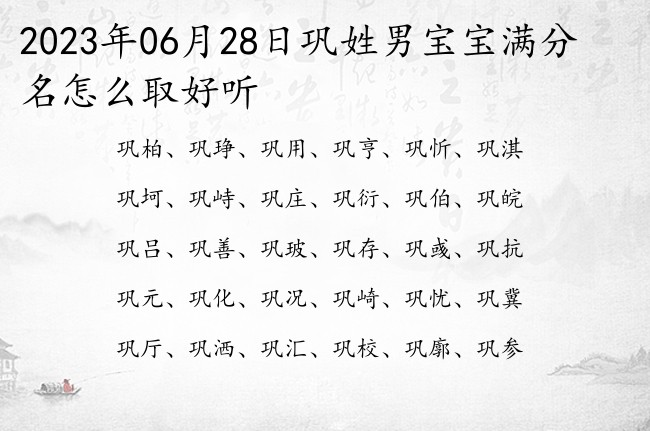 2023年06月28日巩姓男宝宝满分
名怎么取好听
巩柏、巩琤、巩用、巩亨、巩忻、巩淇
巩坷、巩峙、巩庄、巩衍、巩伯、巩皖
巩吕、巩善、巩玻、巩存、巩彧、巩抗
巩元、巩化、巩况、巩崎、巩忧、巩冀
巩厅、巩洒、巩汇、巩校、巩廓、巩参